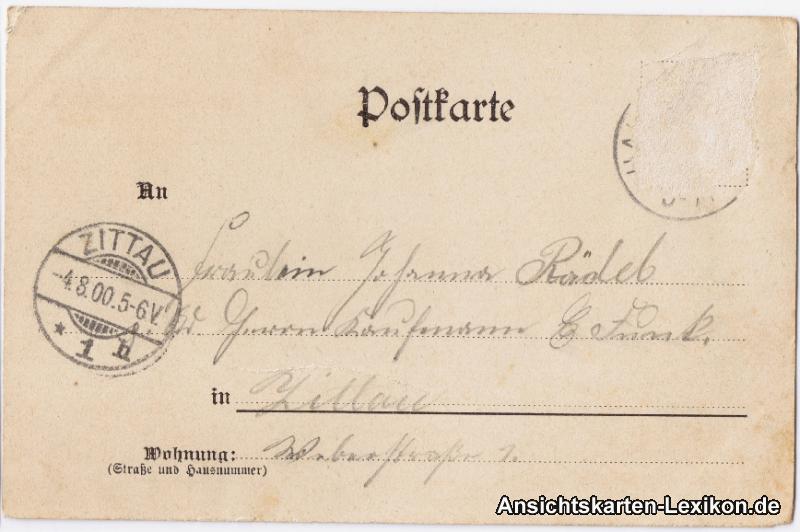 Postkarte
An
ZITTAU
-4.8.00.5-6V
* 1 b
Fräulein Johanna Rädel
Herrn Kaufmann E Funk.
in Zittau
Wohnung: Weberstraße 1.
(Straße und Hausnummer)
Ansichtskarten-Lexikon.de